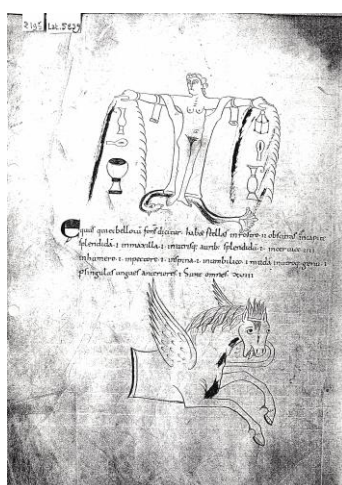 Lat. 5239
Equus qui et bellovi fons dicitur habet stellas in rostro ii obscuras In capite
splendida i in maxilla i in utrisq; aurib; splendida i in cervice iiii
in humero i in pectore i in spina i in umbilico i in utroq; genu i
p singulas ungues anteriores i Sunt omnes xviii